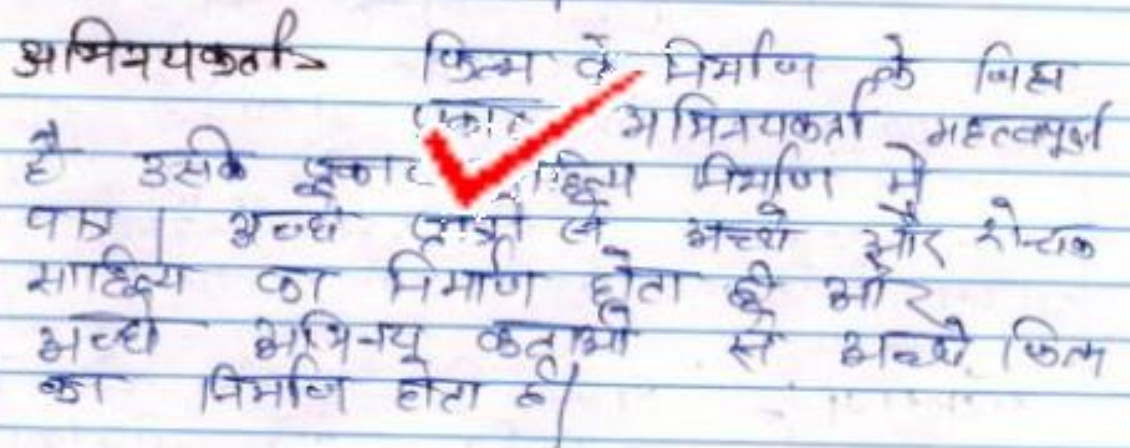 अभिनयकर्ता- फिल्म के निर्माण के जिस
प्रकार अभिनयकर्ता महत्वपूर्ण
है उसकि प्रकार साहित्य निर्माण में
पात्र। अच्छे पात्रों से अच्छे और रोचक
साहित्य का निर्माण होता है और
अच्छे अभिनय कर्ताओं से अच्छे फिल्म
का निर्माण होता है।